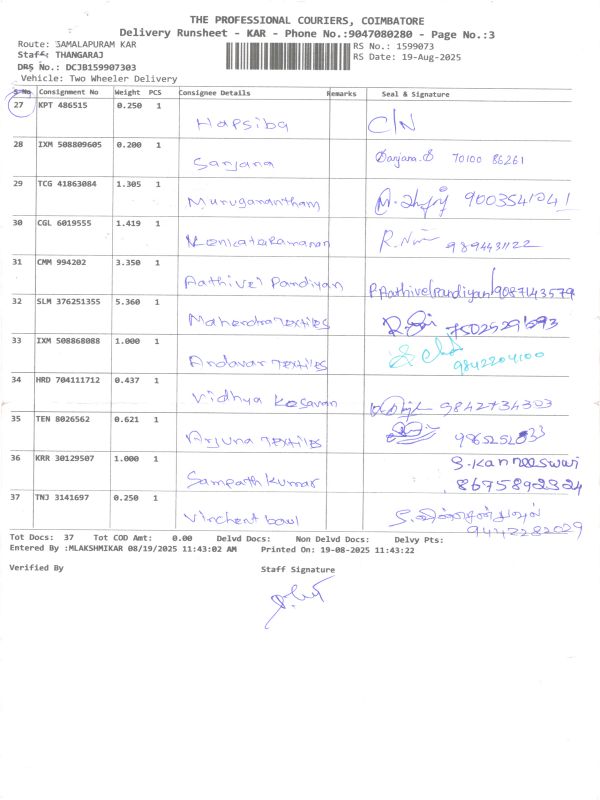 THE PROFESSIONAL COURIERS, COIMBATORE
Delivery Runsheet - KAR - Phone No.:9047080280 - Page No.:3
Route: SAMALAPURAM KAR
RS No.: 1599073
Staff: THANGARAJ
RS Date: 19-Aug-2025
DRS No.: DCJB159907303
Vehicle: Two Wheeler Delivery
S No. Consignment No Weight PCS Consignee Details Remarks Seal & Signature
27 KPT 486515 0.250 1 Hapsiba C/N
28 IXM 508809605 0.200 1 Sanjana Sanjana.S 70100 86261
29 TCG 41863084 1.305 1 Muruganantham
30 CGL 6019555 1.419 1 Venkataramanan
31 CMM 994202 3.350 1 Aathivel Pandiyan P.Aathivelpandiyan 9087143579
32 SLM 376251355 5.360 1 Mahendra Textiles
33 IXM 508868088 1.000 1 Andavar Textiles 9842204100
34 HRD 704111712 0.437 1 Vidhya Kesavan 9842734303
35 TEN 8026562 0.621 1 Arjuna Textiles
36 KRR 30129507 1.000 1 Sampath Kumar S.Kanneeswari 8675892324
37 TNJ 3141697 0.250 1 Vinchent bowl 9442282029
Tot Docs: 37 Tot COD Amt: 0.00 Delvd Docs: Non Delvd Docs: Delvy Pts:
Entered By :MLAKSHMIKAR 08/19/2025 11:43:02 AM Printed On: 19-08-2025 11:43:22
Verified By
Staff Signature